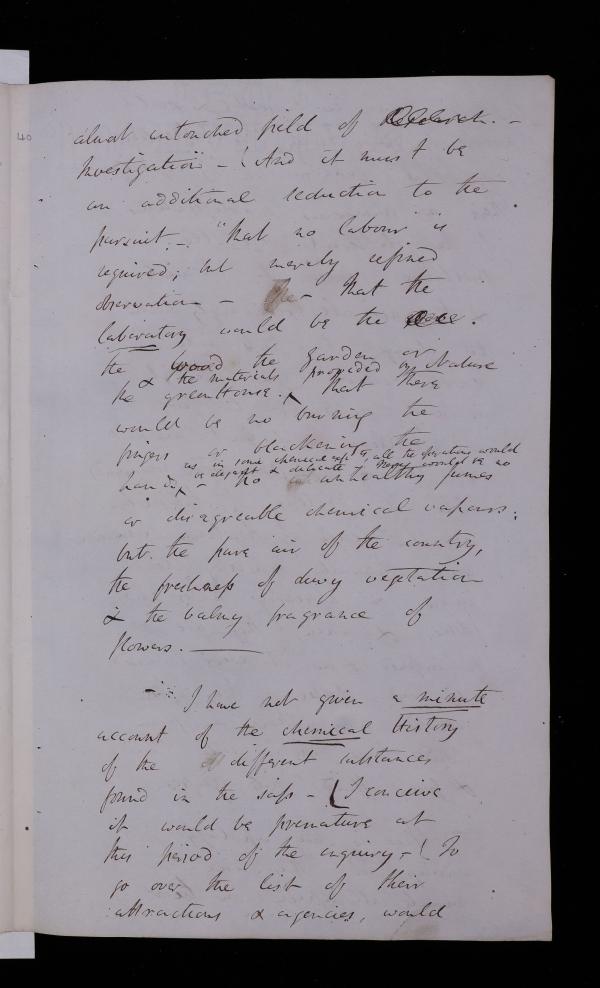 40
almost untouched field of Research. -
Investigation - ! And it must be
an additional seduction to the
pursuit. - "that no labour is
required; but merely refined
observation - The - that the
laboratory would be the
the wood the garden or
& the materials provided by Nature
the greenHouse. that there
would be no burning the
fingers or blackening the
as in some chemical all the operations would
be elegant & delicate - there would be no
hands, - no unhealthy fumes
or disagreeable chemical vapours;
but the pure air of the country,
the freshness of dewy vegetation
& the balmy fragrance of
flowers. -
I have not given a minute
account of the chemical History
of the different substances
found in the saps - I conceive
it would be premature at
this period of the enquiry - ! To
go over the list of their
attractions & agencies, would